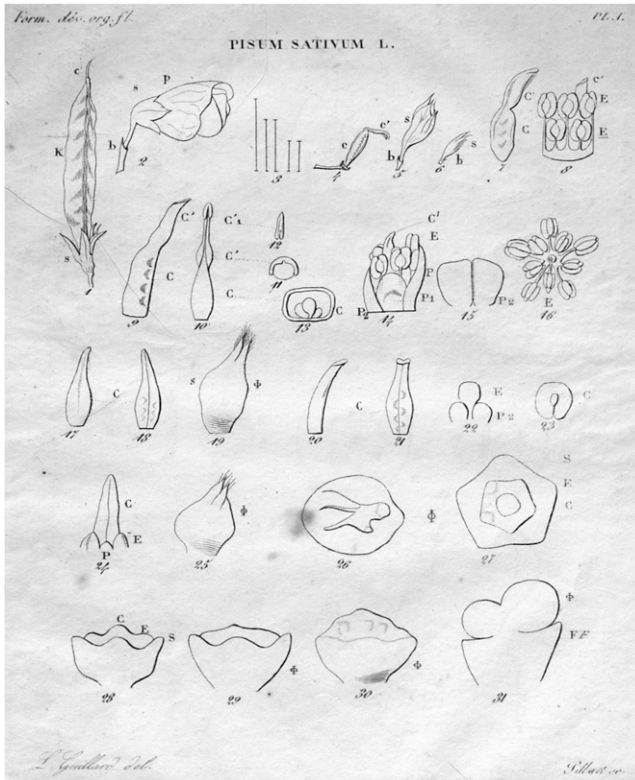 Form. dév. org. fl.
PL. 1.
PISUM SATIVUM L.
c'
K
s
1
s
p
b
2
3
c
c'
4
s
b
5
s
b
6
C'
C
7
c'
E
E
8
C'
C
9
C'2
C'
C
10
12
11
13
C
C'
E
P
P2
P1
14
15
P2
E
16
17
C
18
s
Φ
19
20
C
21
E
P2
22
C
23
C
E
P
24
Φ
25
Φ
26
S
E
C
27
C
E
S
28
Φ
29
Φ
30
Φ
FF
31
L. Guillard del.